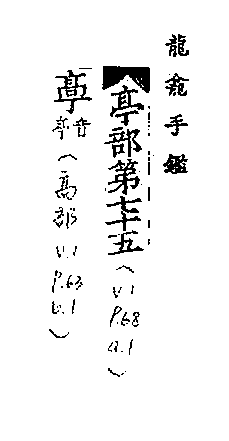 龍龕手鑑
亭部第七十五(V.1 P.68 a.1)
𠅘音亭(高部 V.1 P.63 b.1)